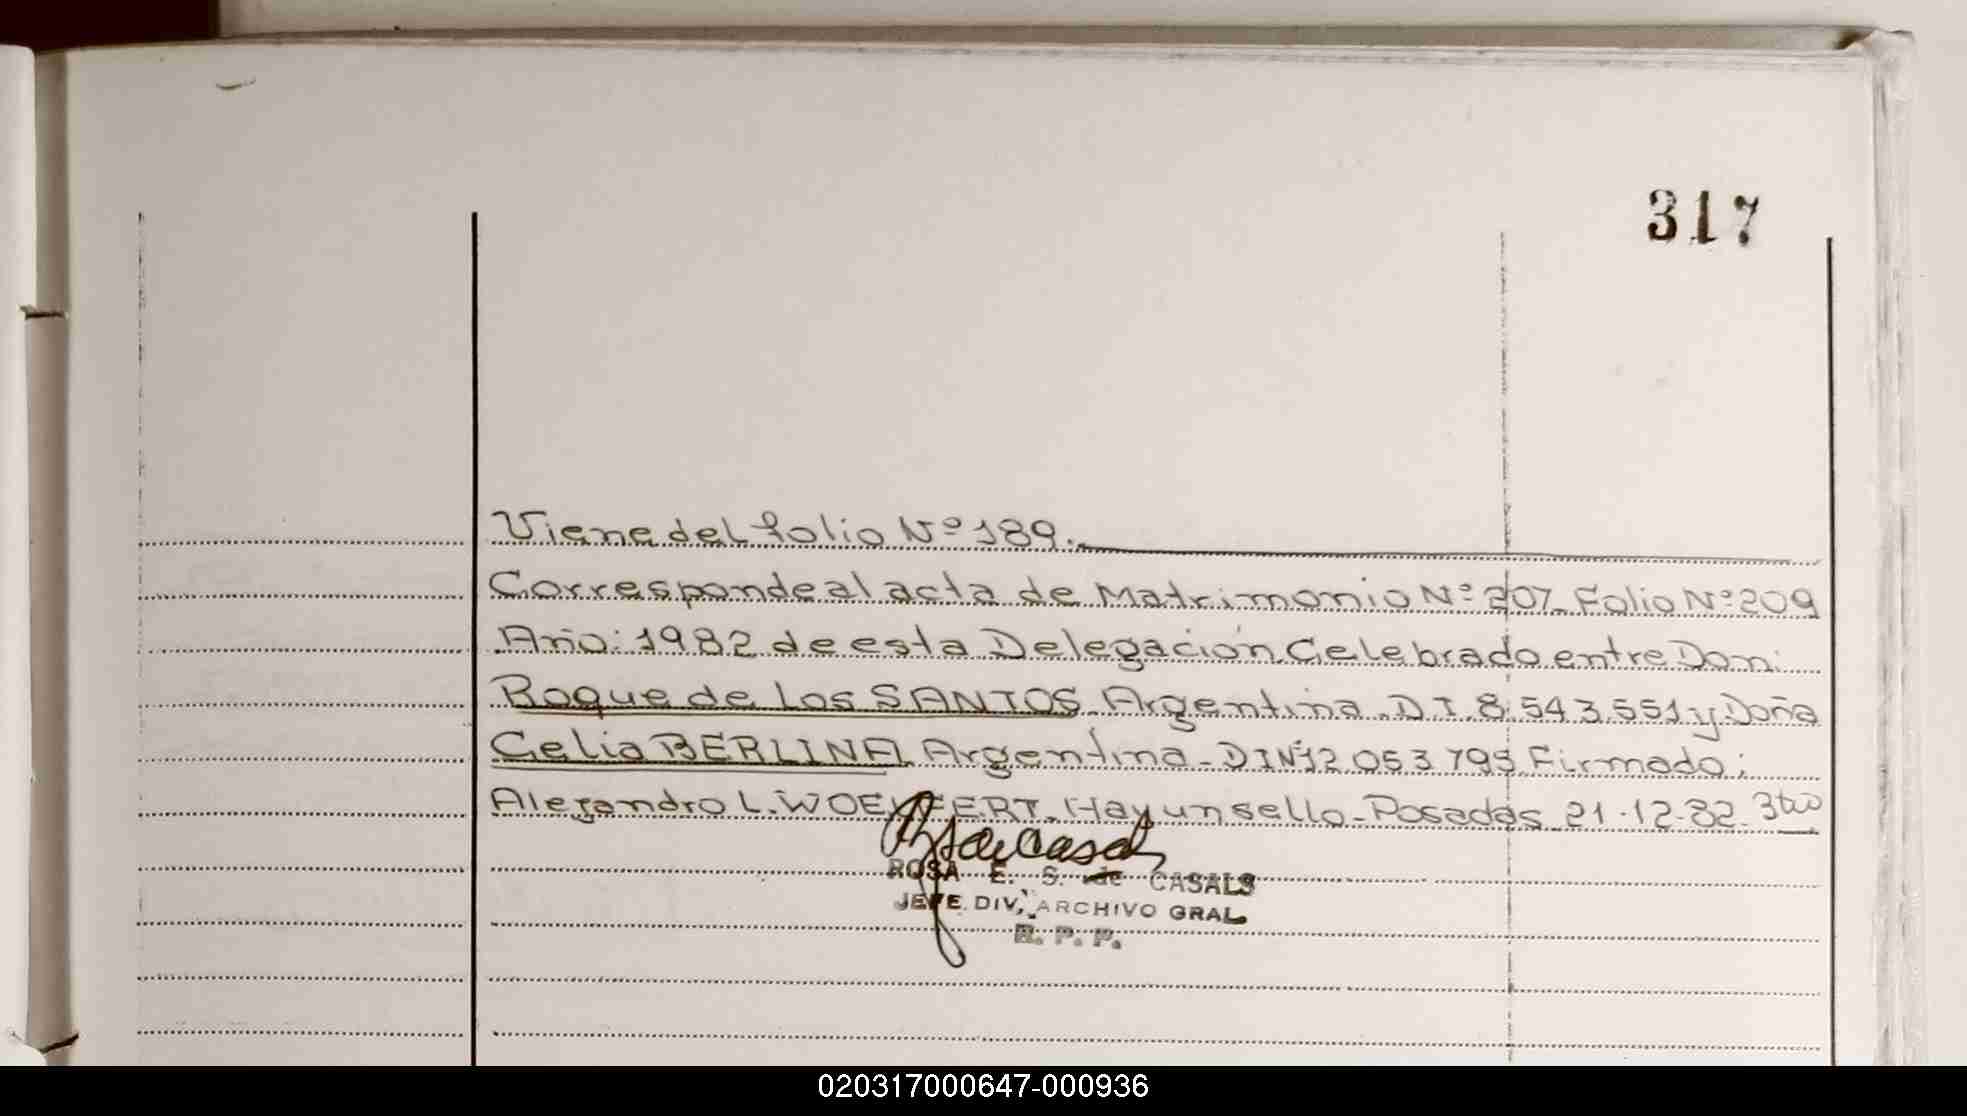 317
Viene del folio Nº 189.
Corresponde al acta de Matrimonio Nº 207 Folio Nº 209
Año: 1982 de esta Delegación Celebrado entre Don:
Roque de Los SANTOS Argentina D I 8.543.551 y Doña
Celia BERLINA Argentina - DINº12 053 793 Firmado:
Alejandro L. Hay un sello - Posadas 21-12-82
ROSA E. S. de CASALS
JEFE DIV. ARCHIVO GRAL.
R. P. P.
020317000647-000936